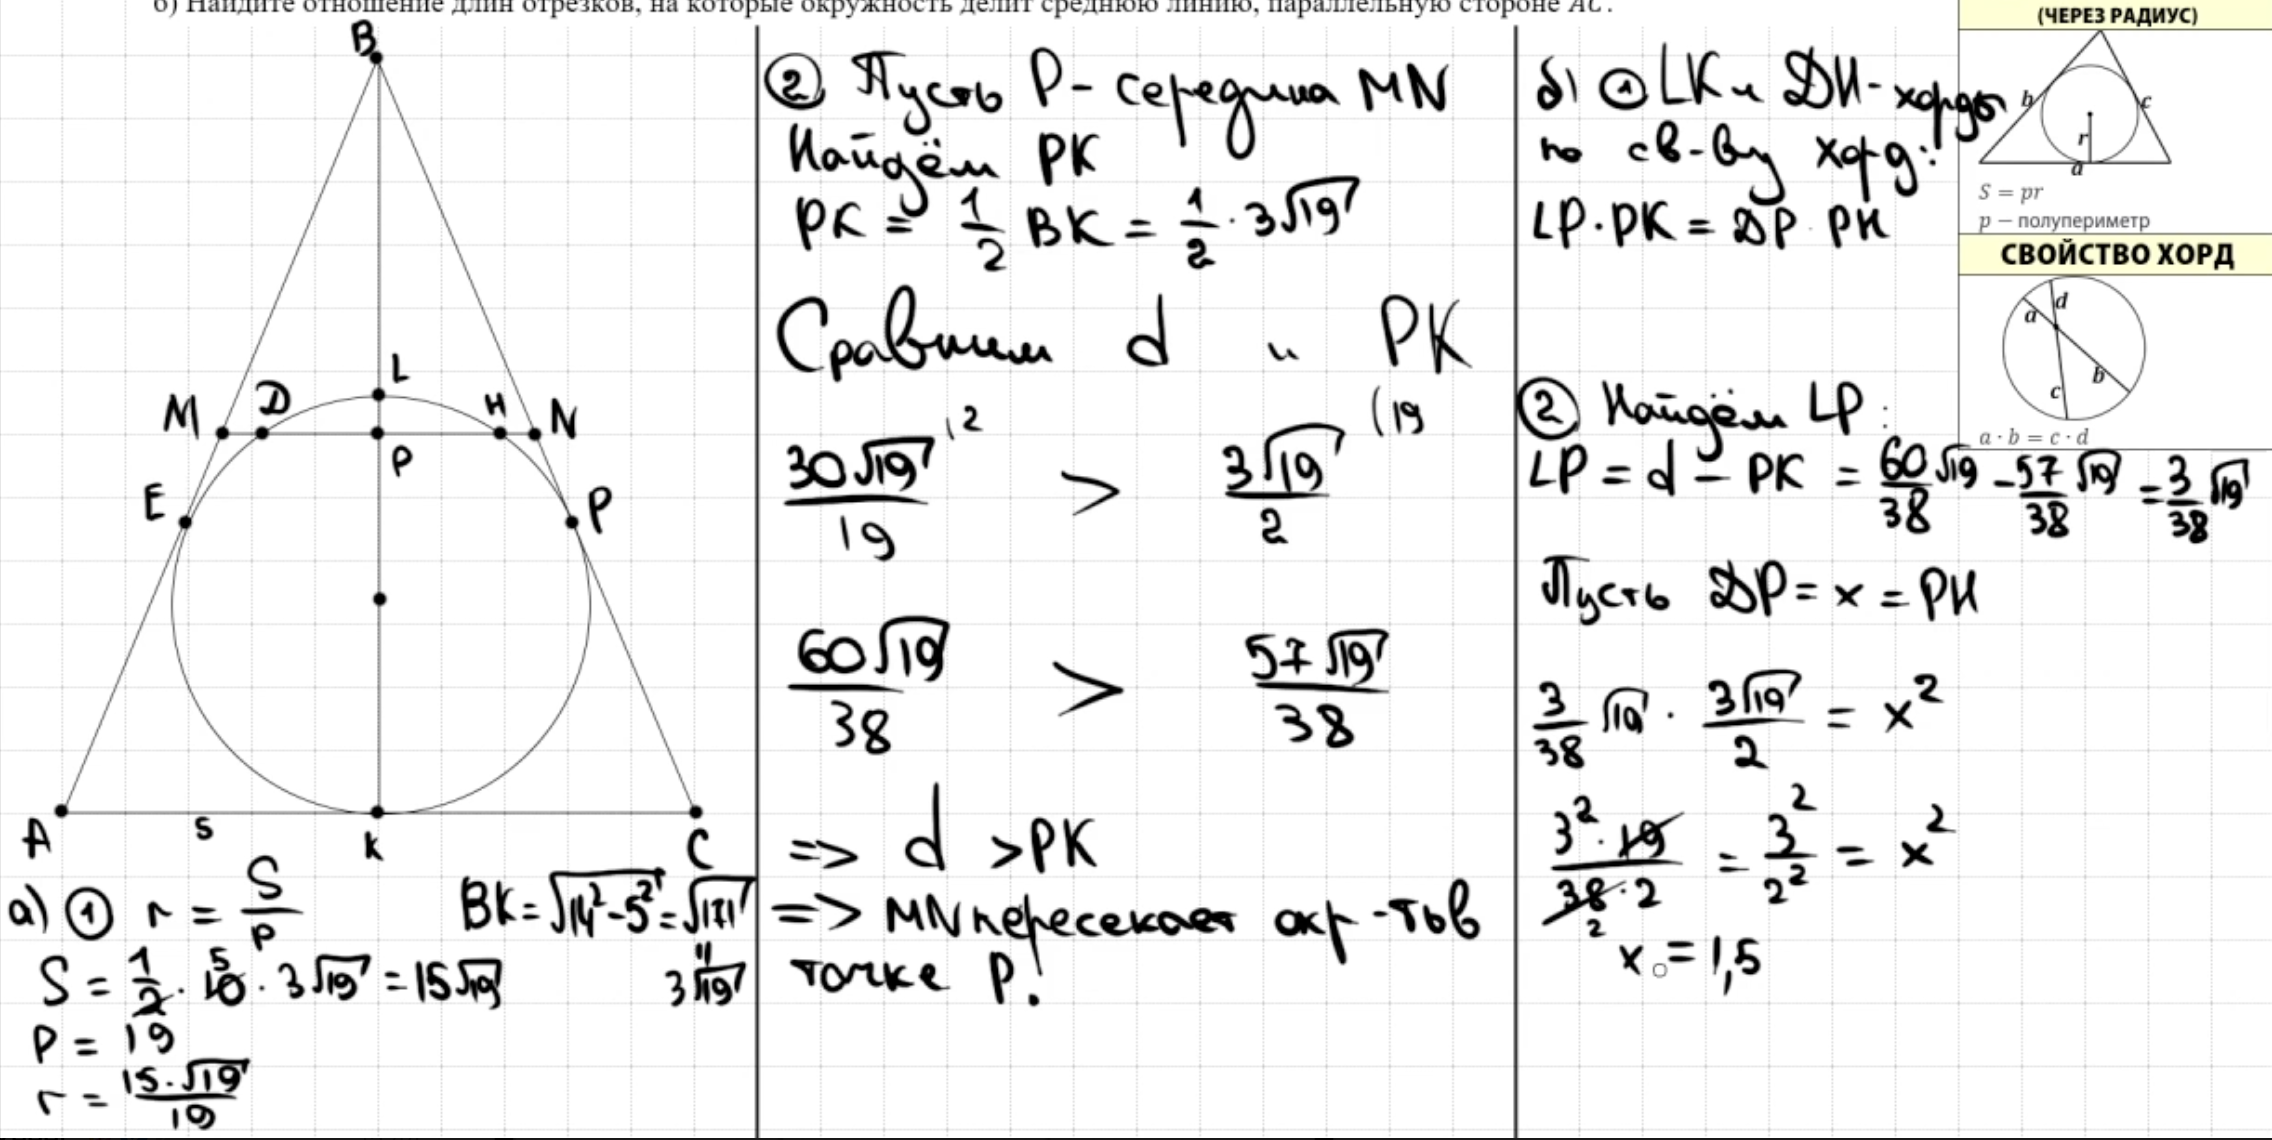 б) Найдите отношение длин отрезков, на которые окружность делит среднюю линию, параллельную стороне AC.
B
L
M D H N
P
E P
A 5 K C
а) ① r = S/p
BK = √(14² - 5²) = √171
3√19
S = 1/2 · 10 · 3√19 = 15√19
5
P = 19
r = 15·√19/19
② Пусть P - середина MN
Найдём PK
PK = 1/2 BK = 1/2 · 3√19
Сравним d и PK
30√19/19 > 3√19/2
(2 (19
60√19/38 > 57√19/38
=> d > PK
=> MN пересекает окр-ть в
точке P!
б) ① LK и DH - хорды
по св-ву хорд:
LP · PK = DP · PH
② Найдём LP:
LP = d - PK = 60/38 √19 - 57/38 √19 = 3/38 √19
Пусть DP = x = PH
3/38 √19 · 3√19/2 = x²
3² · 19/38 · 2 = 3²/2² = x²
2
x = 1,5
(ЧЕРЕЗ РАДИУС)
b c
r
a
S = pr
p — полупериметр
СВОЙСТВО ХОРД
d
a
b
c
a · b = c · d